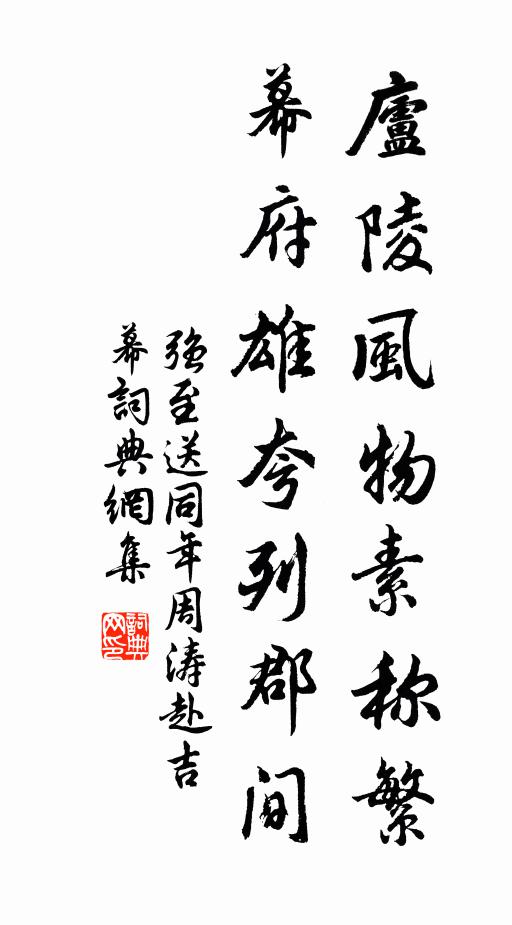 廬陵風物素称繁
幕府雄夸列郡间
强至送同年周涛赴吉
幕詞典網集
詞典网印